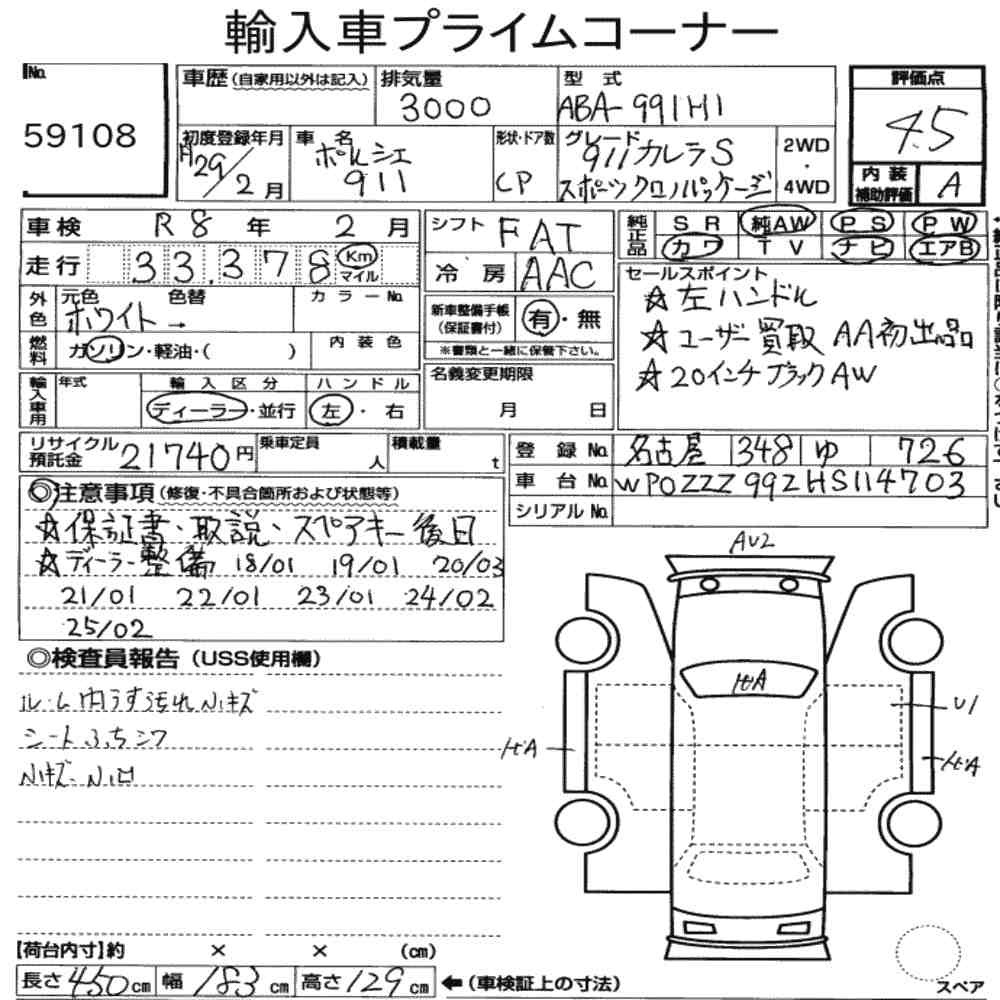 輸入車プライムコーナー
No.
59108
車歴(自家用以外は記入)
排気量
3000
型 式
ABA-991H1
評価点
4.5
初度登録年月
H29/2月
車 名
ポルシェ
911
形状・ドア数
CP
グレード
911カレラS
スポーツクロノパッケージ
2WD
・
4WD
内装
補助評価
A
車検 R8年 2月
走行 33,378 Km
マイル
シフト FAT
冷房 AAC
純正品
SR 純AW PS PW
カワ TV ナビ エアB
外色
元色 色替 カラーNo.
ホワイト→
燃料
ガソリン・軽油・( )
内装色
新車整備手帳
(保証書付)
有・無
※書類と一緒に保管下さい。
セールスポイント
☆左ハンドル
☆ユーザー買取 AA初出品
☆20インチブラックAW
輸入車用
年式
輸入区分
ディーラー・並行
ハンドル
左・右
名義変更期限
月 日
リサイクル
預託金 21740円
乗車定員
人
積載量
t
登録No. 名古屋 348 ゆ 726
車台No. WP0ZZZ99ZHS114703
シリアルNo.
◎注意事項(修復・不具合箇所および状態等)
☆保証書・取説・スペアキー後日
☆ディーラー整備 18/01 19/01 20/03
21/01 22/01 23/01 24/02
25/02
◎検査員報告(USS使用欄)
ルーム内うすよごれ小キズ
シートふちシワ
小キズ・小凹
AU2
ヒA
U1
ヒA
ヒA
【荷台内寸】約 × × (cm)
長さ450cm 幅183cm 高さ129cm ←(車検証上の寸法)
スペア